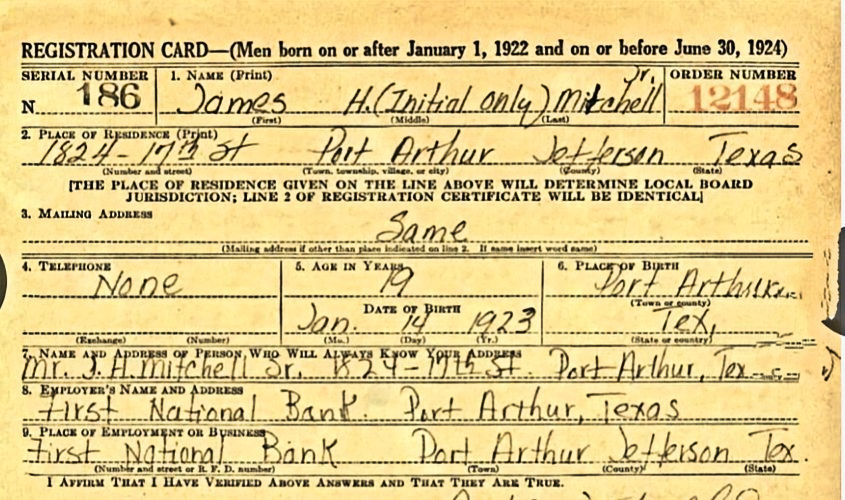 REGISTRATION CARD—(Men born on or after January 1, 1922 and on or before June 30, 1924)
SERIAL NUMBER 1. NAME (Print) ORDER NUMBER
N 186 James H. (Initial only) Mitchell Jr. 12148
(First) (Middle) (Last)
2. PLACE OF RESIDENCE (Print)
1824-17th St Port Arthur Jefferson Texas
(Number and street) (Town, township, village, or city) (County) (State)
[THE PLACE OF RESIDENCE GIVEN ON THE LINE ABOVE WILL DETERMINE LOCAL BOARD
JURISDICTION; LINE 2 OF REGISTRATION CERTIFICATE WILL BE IDENTICAL]
3. MAILING ADDRESS
Same
(Mailing address if other than place indicated on line 2. If same insert word same)
4. TELEPHONE 5. AGE IN YEARS 6. PLACE OF BIRTH
None 19 Port Arthur
(Town or county)
DATE OF BIRTH
Jan. 14 1923 Tex,
(Exchange) (Number) (Mo.) (Day) (Yr.) (State or country)
7. NAME AND ADDRESS OF PERSON WHO WILL ALWAYS KNOW YOUR ADDRESS
Mr. J. H. Mitchell Sr. 1824-17th St. Port Arthur, Tex
8. EMPLOYER'S NAME AND ADDRESS
First National Bank. Port Arthur, Texas
9. PLACE OF EMPLOYMENT OR BUSINESS
First National Bank Port Arthur Jefferson Tex.
(Number and street or R. F. D. number) (Town) (County) (State)
I AFFIRM THAT I HAVE VERIFIED ABOVE ANSWERS AND THAT THEY ARE TRUE.